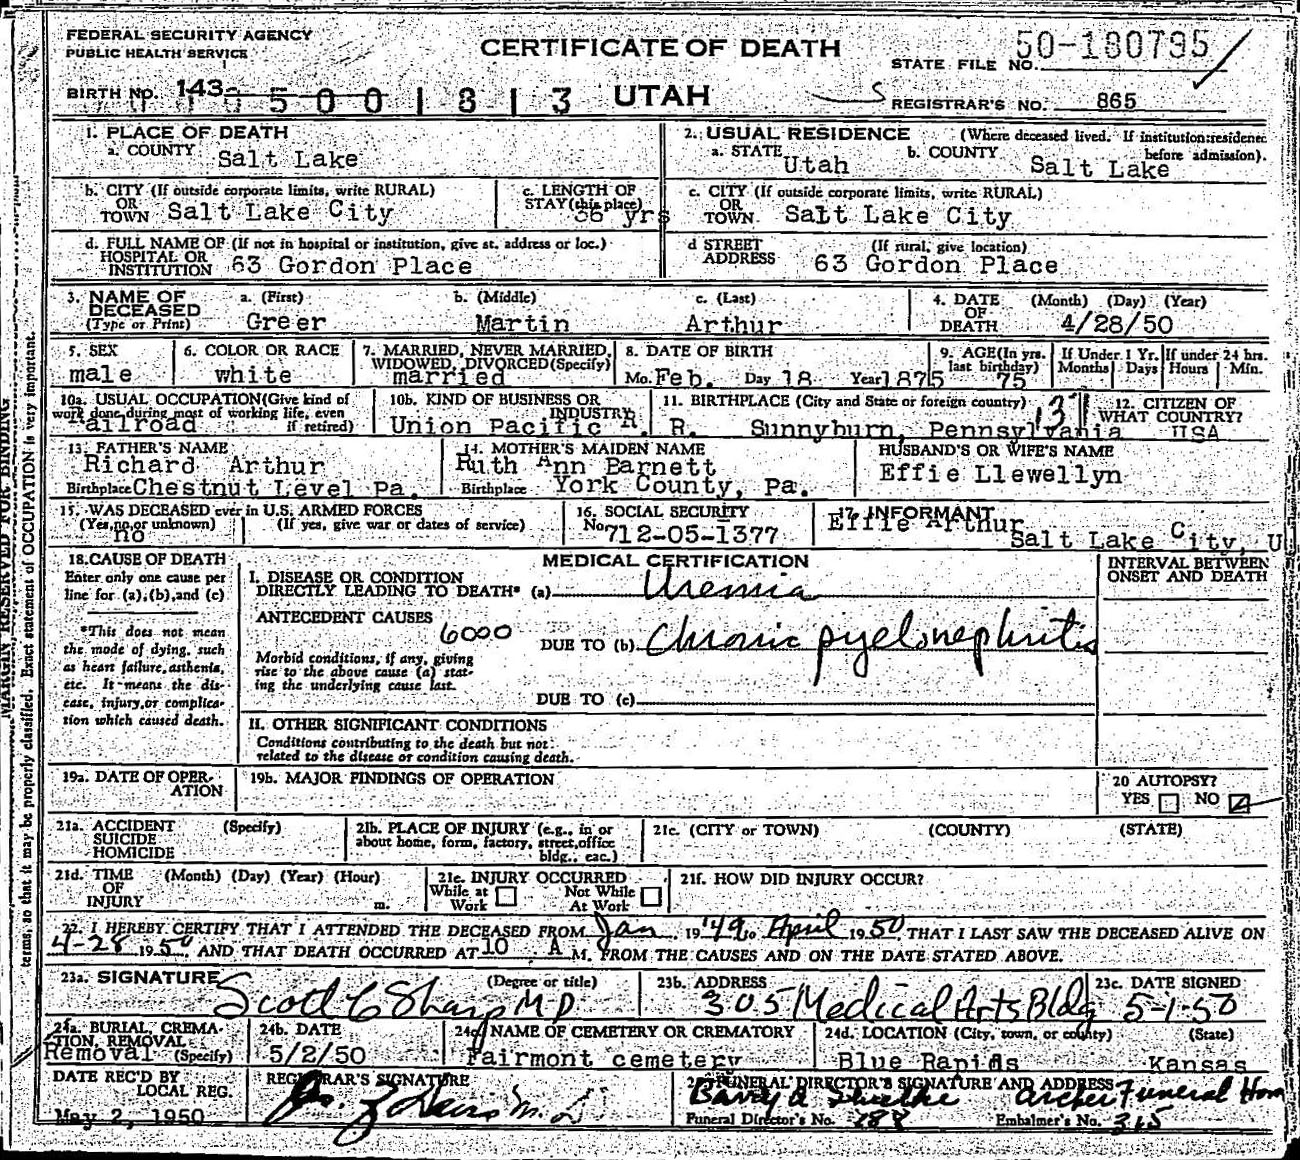 FEDERAL SECURITY AGENCY
PUBLIC HEALTH SERVICE
CERTIFICATE OF DEATH
50-180795
STATE FILE NO.
BIRTH NO. 143
500 1813 UTAH
REGISTRAR'S NO. 865
1. PLACE OF DEATH
a. COUNTY Salt Lake
2. USUAL RESIDENCE (Where deceased lived. If institution:residence before admission).
a. STATE Utah b. COUNTY Salt Lake
b. CITY (If outside corporate limits, write RURAL)
OR TOWN Salt Lake City
c. LENGTH OF STAY (this place) yrs
c. CITY (If outside corporate limits, write RURAL)
OR TOWN Salt Lake City
d. FULL NAME OF (If not in hospital or institution, give st. address or loc.)
HOSPITAL OR INSTITUTION 63 Gordon Place
d STREET ADDRESS (If rural, give location)
63 Gordon Place
3. NAME OF DECEASED (Type or Print)
a. (First) Greer
b. (Middle) Martin
c. (Last) Arthur
4. DATE OF DEATH (Month) (Day) (Year)
4/28/50
5. SEX
male
6. COLOR OR RACE
white
7. MARRIED, NEVER MARRIED, WIDOWED, DIVORCED (Specify)
married
8. DATE OF BIRTH
Mo. Feb. Day 18 Year 1875
9. AGE (In yrs. last birthday) 75
If Under 1 Yr. Months Days
If under 24 hrs. Hours Min.
10a. USUAL OCCUPATION (Give kind of work done during most of working life, even if retired)
Railroad
10b. KIND OF BUSINESS OR INDUSTRY
Union Pacific R. R.
11. BIRTHPLACE (City and State or foreign country) 137
Sunnyburn, Pennsylvania
12. CITIZEN OF WHAT COUNTRY?
USA
13. FATHER'S NAME
Richard Arthur
Birthplace Chestnut Level Pa.
14. MOTHER'S MAIDEN NAME
Ruth Ann Barnett
Birthplace York County, Pa.
HUSBAND'S OR WIFE'S NAME
Effie Llewellyn
15. WAS DECEASED ever in U.S. ARMED FORCES
(Yes, no, or unknown) (If yes, give war or dates of service)
no
16. SOCIAL SECURITY
No. 712-05-1377
17. INFORMANT
Effie Arthur
Salt Lake City, U
18. CAUSE OF DEATH
Enter only one cause per line for (a), (b), and (c)
*This does not mean the mode of dying, such as heart failure, asthenia, etc. It means the disease, injury, or complication which caused death.
MEDICAL CERTIFICATION
INTERVAL BETWEEN ONSET AND DEATH
I. DISEASE OR CONDITION
DIRECTLY LEADING TO DEATH* (a) Uremia
ANTECEDENT CAUSES
6000
DUE TO (b) Chronic pyelonephritis
Morbid conditions, if any, giving rise to the above cause (a) stating the underlying cause last.
DUE TO (c)
II. OTHER SIGNIFICANT CONDITIONS
Conditions contributing to the death but not related to the disease or condition causing death.
19a. DATE OF OPERATION
19b. MAJOR FINDINGS OF OPERATION
20 AUTOPSY?
YES NO
21a. ACCIDENT SUICIDE HOMICIDE (Specify)
21b. PLACE OF INJURY (e.g., in or about home, form, factory, street, office bldg., eac.)
21c. (CITY or TOWN) (COUNTY) (STATE)
21d. TIME OF INJURY (Month) (Day) (Year) (Hour) m.
21e. INJURY OCCURRED
While at Work Not While At Work
21f. HOW DID INJURY OCCUR?
22. I HEREBY CERTIFY THAT I ATTENDED THE DECEASED FROM Jan, 1949 to April 1950, THAT I LAST SAW THE DECEASED ALIVE ON
4-28 1950, AND THAT DEATH OCCURRED AT 10 A M. FROM THE CAUSES AND ON THE DATE STATED ABOVE.
23a. SIGNATURE (Degree or title)
Scott C Sharp M D
23b. ADDRESS
305 Medical Arts Bldg
23c. DATE SIGNED
5-1-50
24a. BURIAL, CREMATION, REMOVAL (Specify)
Removal
24b. DATE
5/2/50
24c. NAME OF CEMETERY OR CREMATORY
Fairmont cemetery
24d. LOCATION (City, town, or county) (State)
Blue Rapids Kansas
DATE REC'D BY LOCAL REG.
May 2, 1950
REGISTRAR'S SIGNATURE
FUNERAL DIRECTOR'S SIGNATURE AND ADDRESS
Archer Funeral Hom
Funeral Director's No. 288 Embalmer's No. 315
MARGIN RESERVED FOR BINDING
terms, so that it may be properly classified. Exact statement of OCCUPATION is very important.